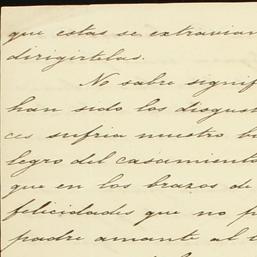 que estas se extravian
dirigirtelas.
No sabre signif
han sido los disgust
ces sufria nuestro b
legro del casamiento
que en los brazos de
felicidades que no p
padre amante al